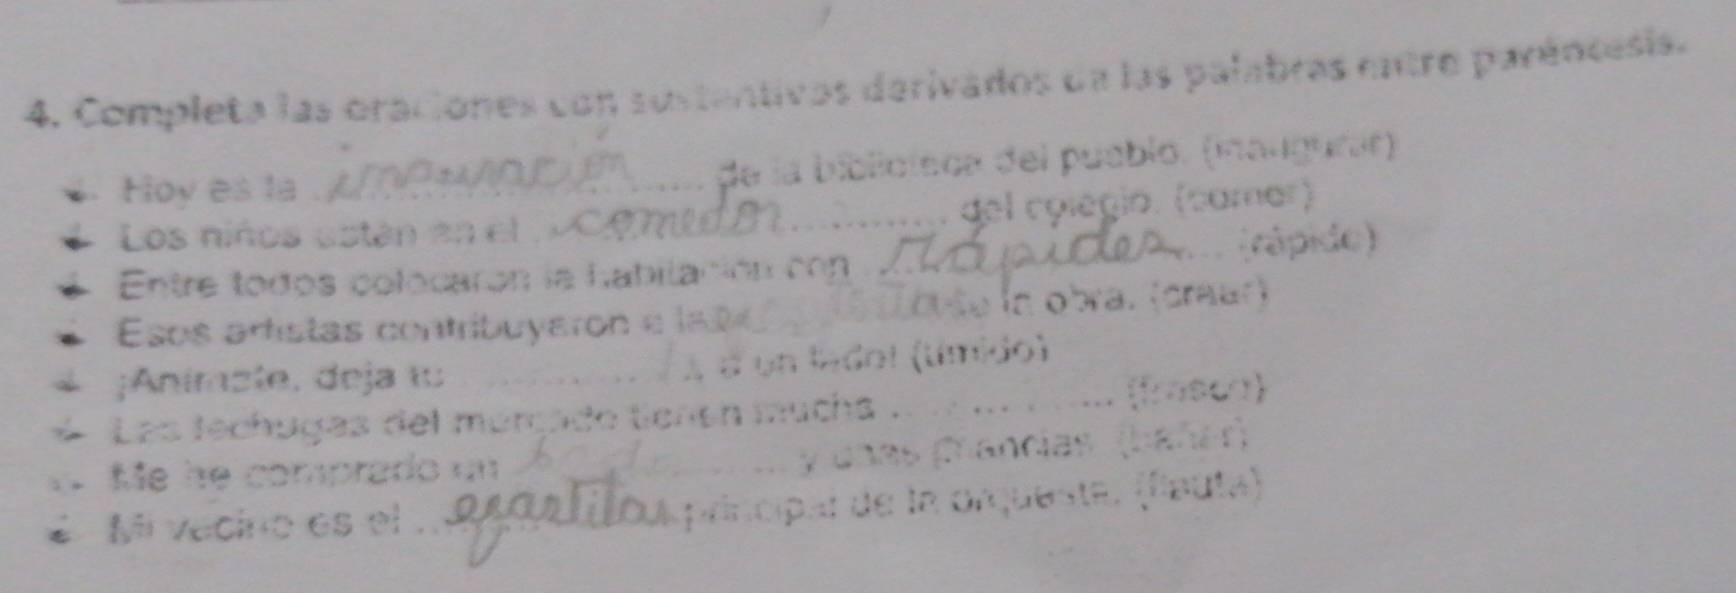 4. Completa las oraciones con sustantivos derivados de las palabras entre paréntesis.
Hoy es la de la biblioteca del pueblo. (inaugurar)
Los niños están en el comedor del colegio. (comer)
Entre todos colocaron la habitación con rápides (rápido)
Esos artistas contribuyeron a la de la obra. (crear)
¡Anímate, deja tu a un lado! (tímido)
Las lechugas del mercado tienen mucha (fresco)
Me he comprado un y unas chanclas. (bañar)
Mi vecino es el principal de la orquesta. (flauta)